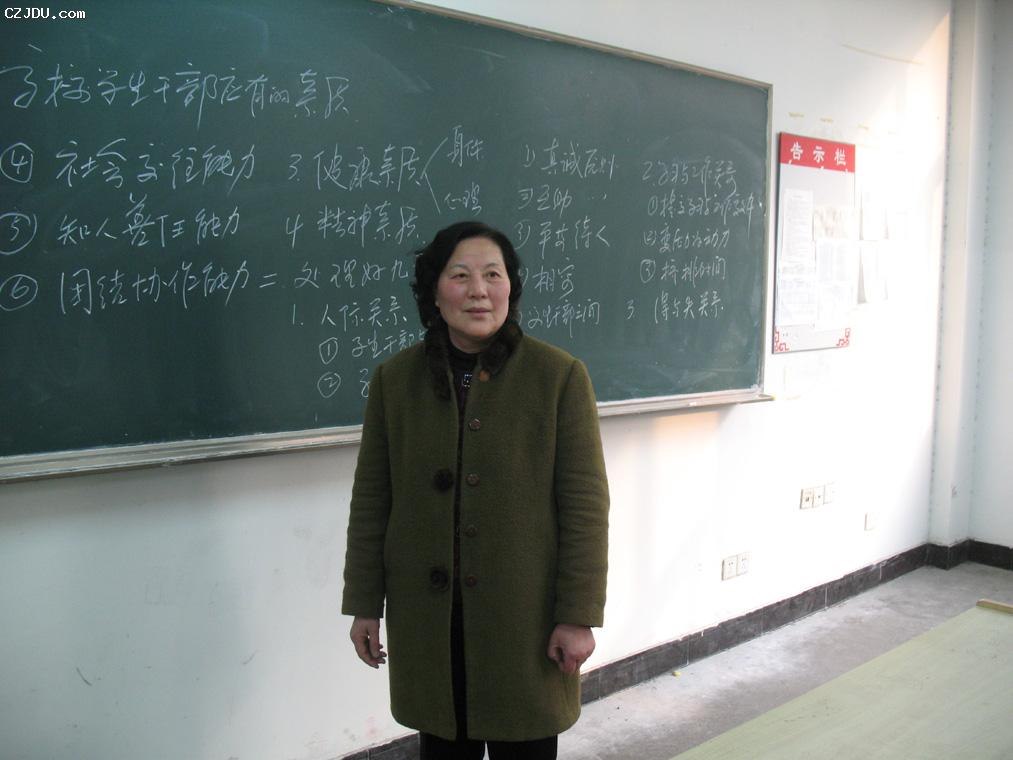 CZJDU.com
高校学生干部应有的素质
④ 社会交往能力
⑤ 知人善任能力
⑥ 团结协作能力
3. 健康素质
身体
心理
4 精神素质
二 处理好九
1. 人际关系
① 学生干部
②
① 真诚原则
② 互助 〃
③ 平等待人
相容
学生干部之间
2. 学习与工作关系
②变压力为动力
③ 科排时间
3 得与失关系
告示栏